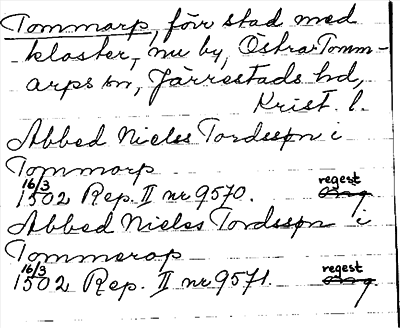 Tommarp, förr stad med
kloster, nu by, Östra Tomm-
arps sn, Järrestads hd,
Krist. l.
Abbed Nicles Tordsspn i
Tommorp
16/3 1502 Rep. II nr 9570. regest
Abbed Nicles Tordsspn i
Tommerop
16/3 1502 Rep. II nr 9571. regest